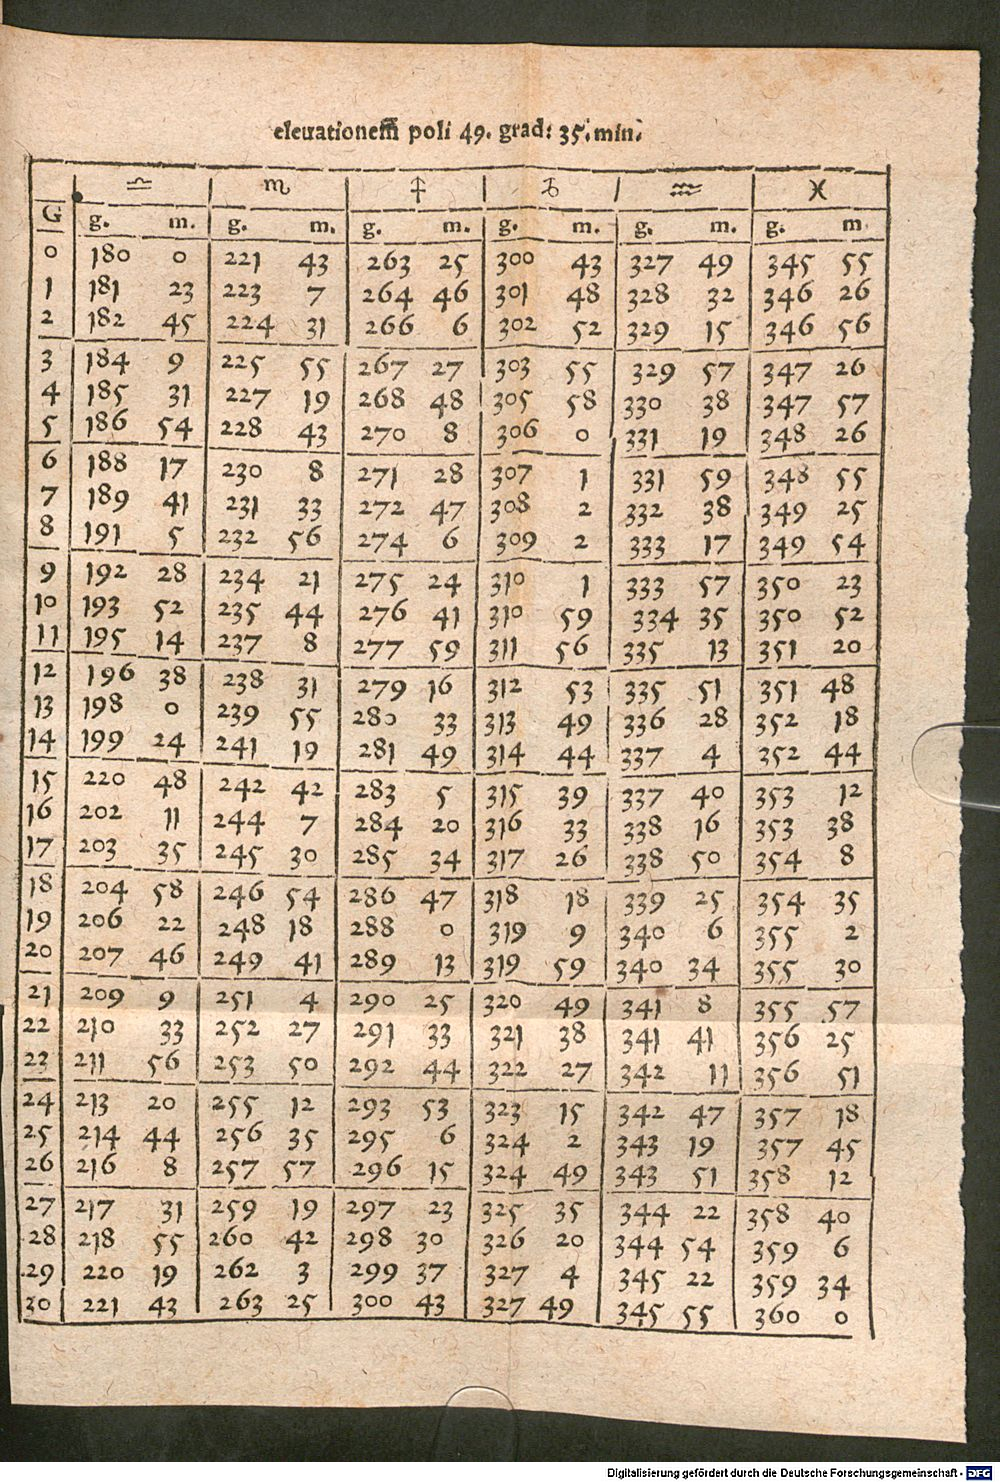 eleuationem̃ poli 49. grad: 35. min.
♎ ♏ ♐ ♑ ♒ ♓
G g. m. g. m. g. m. g. m. g. m. g. m
0 180 0 221 43 263 25 300 43 327 49 345 55
1 181 23 223 7 264 46 301 48 328 32 346 26
2 182 45 224 31 266 6 302 52 329 15 346 56
3 184 9 225 55 267 27 303 55 329 57 347 26
4 185 31 227 19 268 48 305 58 330 38 347 57
5 186 54 228 43 270 8 306 0 331 19 348 26
6 188 17 230 8 271 28 307 1 331 59 348 55
7 189 41 231 33 272 47 308 2 332 38 349 25
8 191 5 232 56 274 6 309 2 333 17 349 54
9 192 28 234 21 275 24 310 1 333 57 350 23
10 193 52 235 44 276 41 310 59 334 35 350 52
11 195 14 237 8 277 59 311 56 335 13 351 20
12 196 38 238 31 279 16 312 53 335 51 351 48
13 198 0 239 55 280 33 313 49 336 28 352 18
14 199 24 241 19 281 49 314 44 337 4 352 44
15 220 48 242 42 283 5 315 39 337 40 353 12
16 202 11 244 7 284 20 316 33 338 16 353 38
17 203 35 245 30 285 34 317 26 338 50 354 8
18 204 58 246 54 286 47 318 18 339 25 354 35
19 206 22 248 18 288 0 319 9 340 6 355 2
20 207 46 249 41 289 13 319 59 340 34 355 30
21 209 9 251 4 290 25 320 49 341 8 355 57
22 210 33 252 27 291 33 321 38 341 41 356 25
23 211 56 253 50 292 44 322 27 342 11 356 51
24 213 20 255 12 293 53 323 15 342 47 357 18
25 214 44 256 35 295 6 324 2 343 19 357 45
26 216 8 257 57 296 15 324 49 343 51 358 12
27 217 31 259 19 297 23 325 35 344 22 358 40
28 218 55 260 42 298 30 326 20 344 54 359 6
29 220 19 262 3 299 37 327 4 345 22 359 34
30 221 43 263 25 300 43 327 49 345 55 360 0
Digitalisierung gefördert durch die Deutsche Forschungsgemeinschaft - DFG